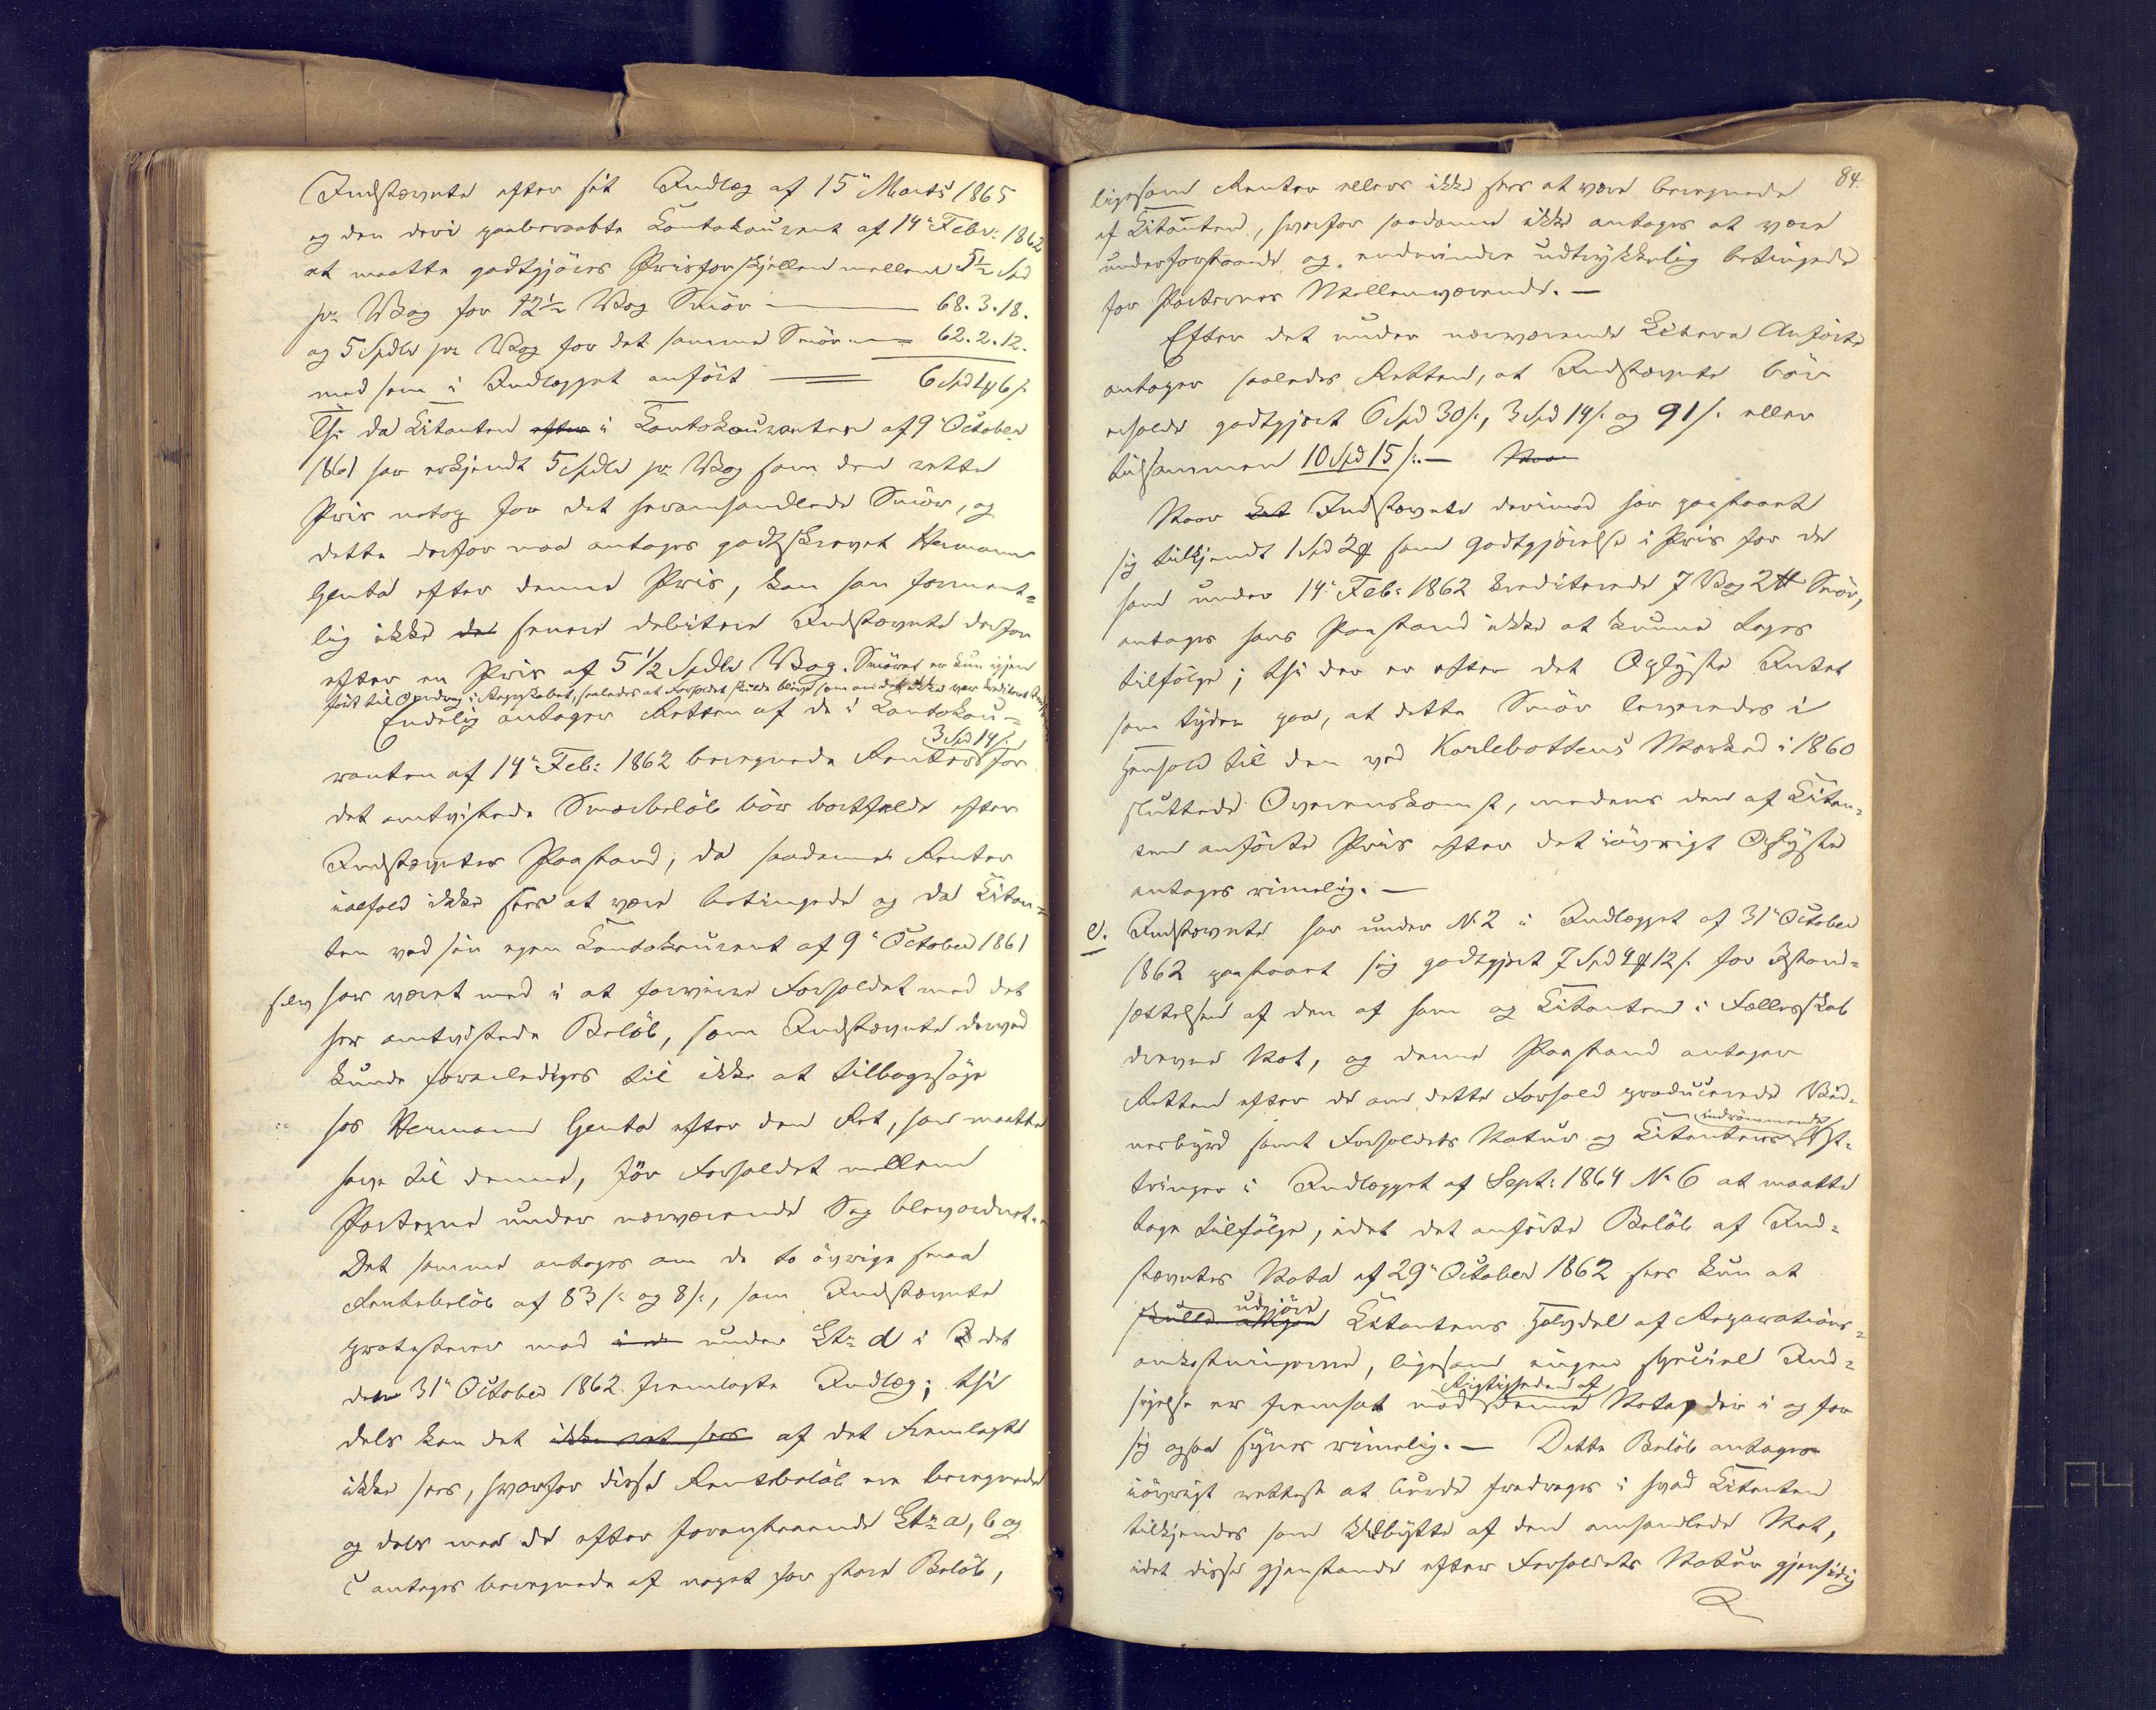 Indstævnte efter sit Indlæg af 15de Marts 1865
og den deri paaberaabte Contokourent af 14de Febr: 1862
at maatte godtgjöres Prisforskjellen mellem 5½ Spd
pr Vog for 12½ Vog Smör — 68. 3. 18.
og 5 Spdlr pr Vog for det samme Smör — 62. 2. 12.
med som i Indlægget anfört — 6 Spd 1 ort 6 s.
Thi da Citanten efter i Contokouranten af 9de October
1861 har erkjendt 5 Spdlr pr Vog som den rette
Pris netop for det heromhandlede Smör, og
dette derfor maa antages godtskrevet Hermann
Genta efter denne Pris, kan han forment-
lig ikke det senere debitere Indstævnte derfor
efter en Pris af 5½ Spdlr Vog. Smöret er kun igjen
fört til Opdrag i Regnskabet, saaledes at Forholdet skulde blive som om det ikke var krediteret
Endelig antager Retten at de i Contokou-
3 Spd 14 s.
ranten af 14de Feb: 1862 beregnede Renter for
det omtvistede Smörbelöb bör bortfalde efter
Indstævntes Paastand, da saadanne Renter
ialfald ikke sees at være betingede og da Citan-
ten ved sin egen Contokourant af 9de October 1861
selv har været med i at forvirre Forholdet med det
her omtvistede Belöb, som Indstævnte derved
kunde foranlediges til ikke at tilbagesöge
hos Hermann Genta efter den Ret, han maatte
have til denne, för Forholdet mellem
Parterne under nærværende Sag blev ordnet.
Det samme antages om de to övrige smaa
Rentebelöb af 83 s: og 8 s:, som Indstævnte
protesterer mod i de under Ltr d i det
den 31te October 1862 fremlagte Indlæg; thi
dels kan det ikke ret sees af det Fremlagte
ikke sees, hvorfor disse Rentebelöb ere beregnede
og dels maa de efter foranstaaende Ltr a, b og
c antages beregnede af noget for store Belöb,
84.
ligesom Renter ellers ikke sees at være beregnede
af Citanten, hvorfor saadanne ikke antages at være
underforstaaede og endmindre udtrykkelig betingede
for Parternes Mellemværende. —
Efter det under nærværende Litera Anförte
antager saaledes Retten, at Indstævnte bör
erholde godtgjort 6 Spd 30 s., 3 Spd 14 s. og 91 s. eller
tilsammen 10 Spd 15 s. — Naar
Naar Indstævnte derimod har paastaaet
sig tilkjendt 1 Spd 2 ort som Godtgjörelse i Pris for de
ham under 14de Feb: 1862 krediterede 7 Vog 2 ℔ Smör,
antages hans Paastand ikke at kunne tages
tilfölge; thi der er efter det Oplyste Intet
som tyder paa, at dette Smör leveredes i
Henhold til den ved Karlebottens Marked i 1860
sluttede Overenskomst, medens den af Citan-
ten anförte Pris efter det iövrigt Oplyste
antages rimelig. —
e. Indstævnte har under N. 2 i Indlægget af 31te October
1862 paastaaet sig godtgjort 7 Spd 4 ort 12 s. for Istand-
sættelsen af den af ham og Citanten i Fællesskab
drevne Not, og denne Paastand antager
Retten efter de om dette Forhold producerede Vid-
indrömmende
nesbyrd samt Forholdets Natur og Citantens Yt-
tringer i Indlægget af Sept: 1864 No 6 at maatte
tage tilfölge, idet det anförte Belöb af Ind-
stævntes Nota af 29de October 1862 sees kun at
udgjöre
skulle Citantens Halvdel af Reparations-
omkostningerne, ligesom ingen speciel Ind-
Rigtigheden af
sigelse er fremsat mod denne Nota, der i og for
sig ogsaa synes rimelig. — Dette Belöb antages
iövrigt rettest at burde fradrages i hvad Citanten
tilkjendes som Udbytte af den omhandlede Not,
idet disse Gjenstande efter Forholdets Natur gjensidig